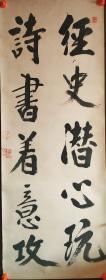 經史潜心玩
詩書着意攻